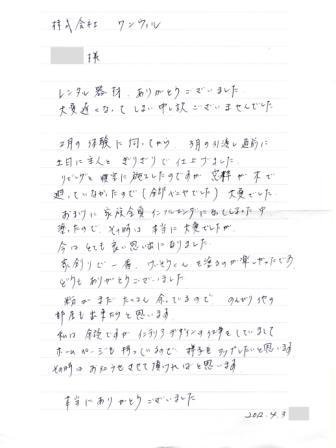 株式会社 ワンウィル
様
レンタル器材、ありがとうございました
大変遅くなってしまい申し訳ございませんでした
2月の体験に伺ってから 3月の引渡し直前に
土日に主人と ぎりぎりで仕上げました
リビングと寝室に施工したのですが 窓枠が木で
(全部ベニヤでした) 大変でした
おまけに家族全員インフルエンザに
塗ったので、その時は本当に大変でしたが
今は とても良い思い出になりました
家創りで一番、けいそうくんを塗るのが楽しかったです
ありがとうございました
粉が まだ たくさん 余っているので のんびり他の
部屋も 出来たらと思います
私は 余談ですが インテリアデザインの仕事をしていまして
ホームページも持っているので 様子をアップしたいと思います
その時は お知らせさせて頂ければと思います
本当にありがとうございました
2012.4.3